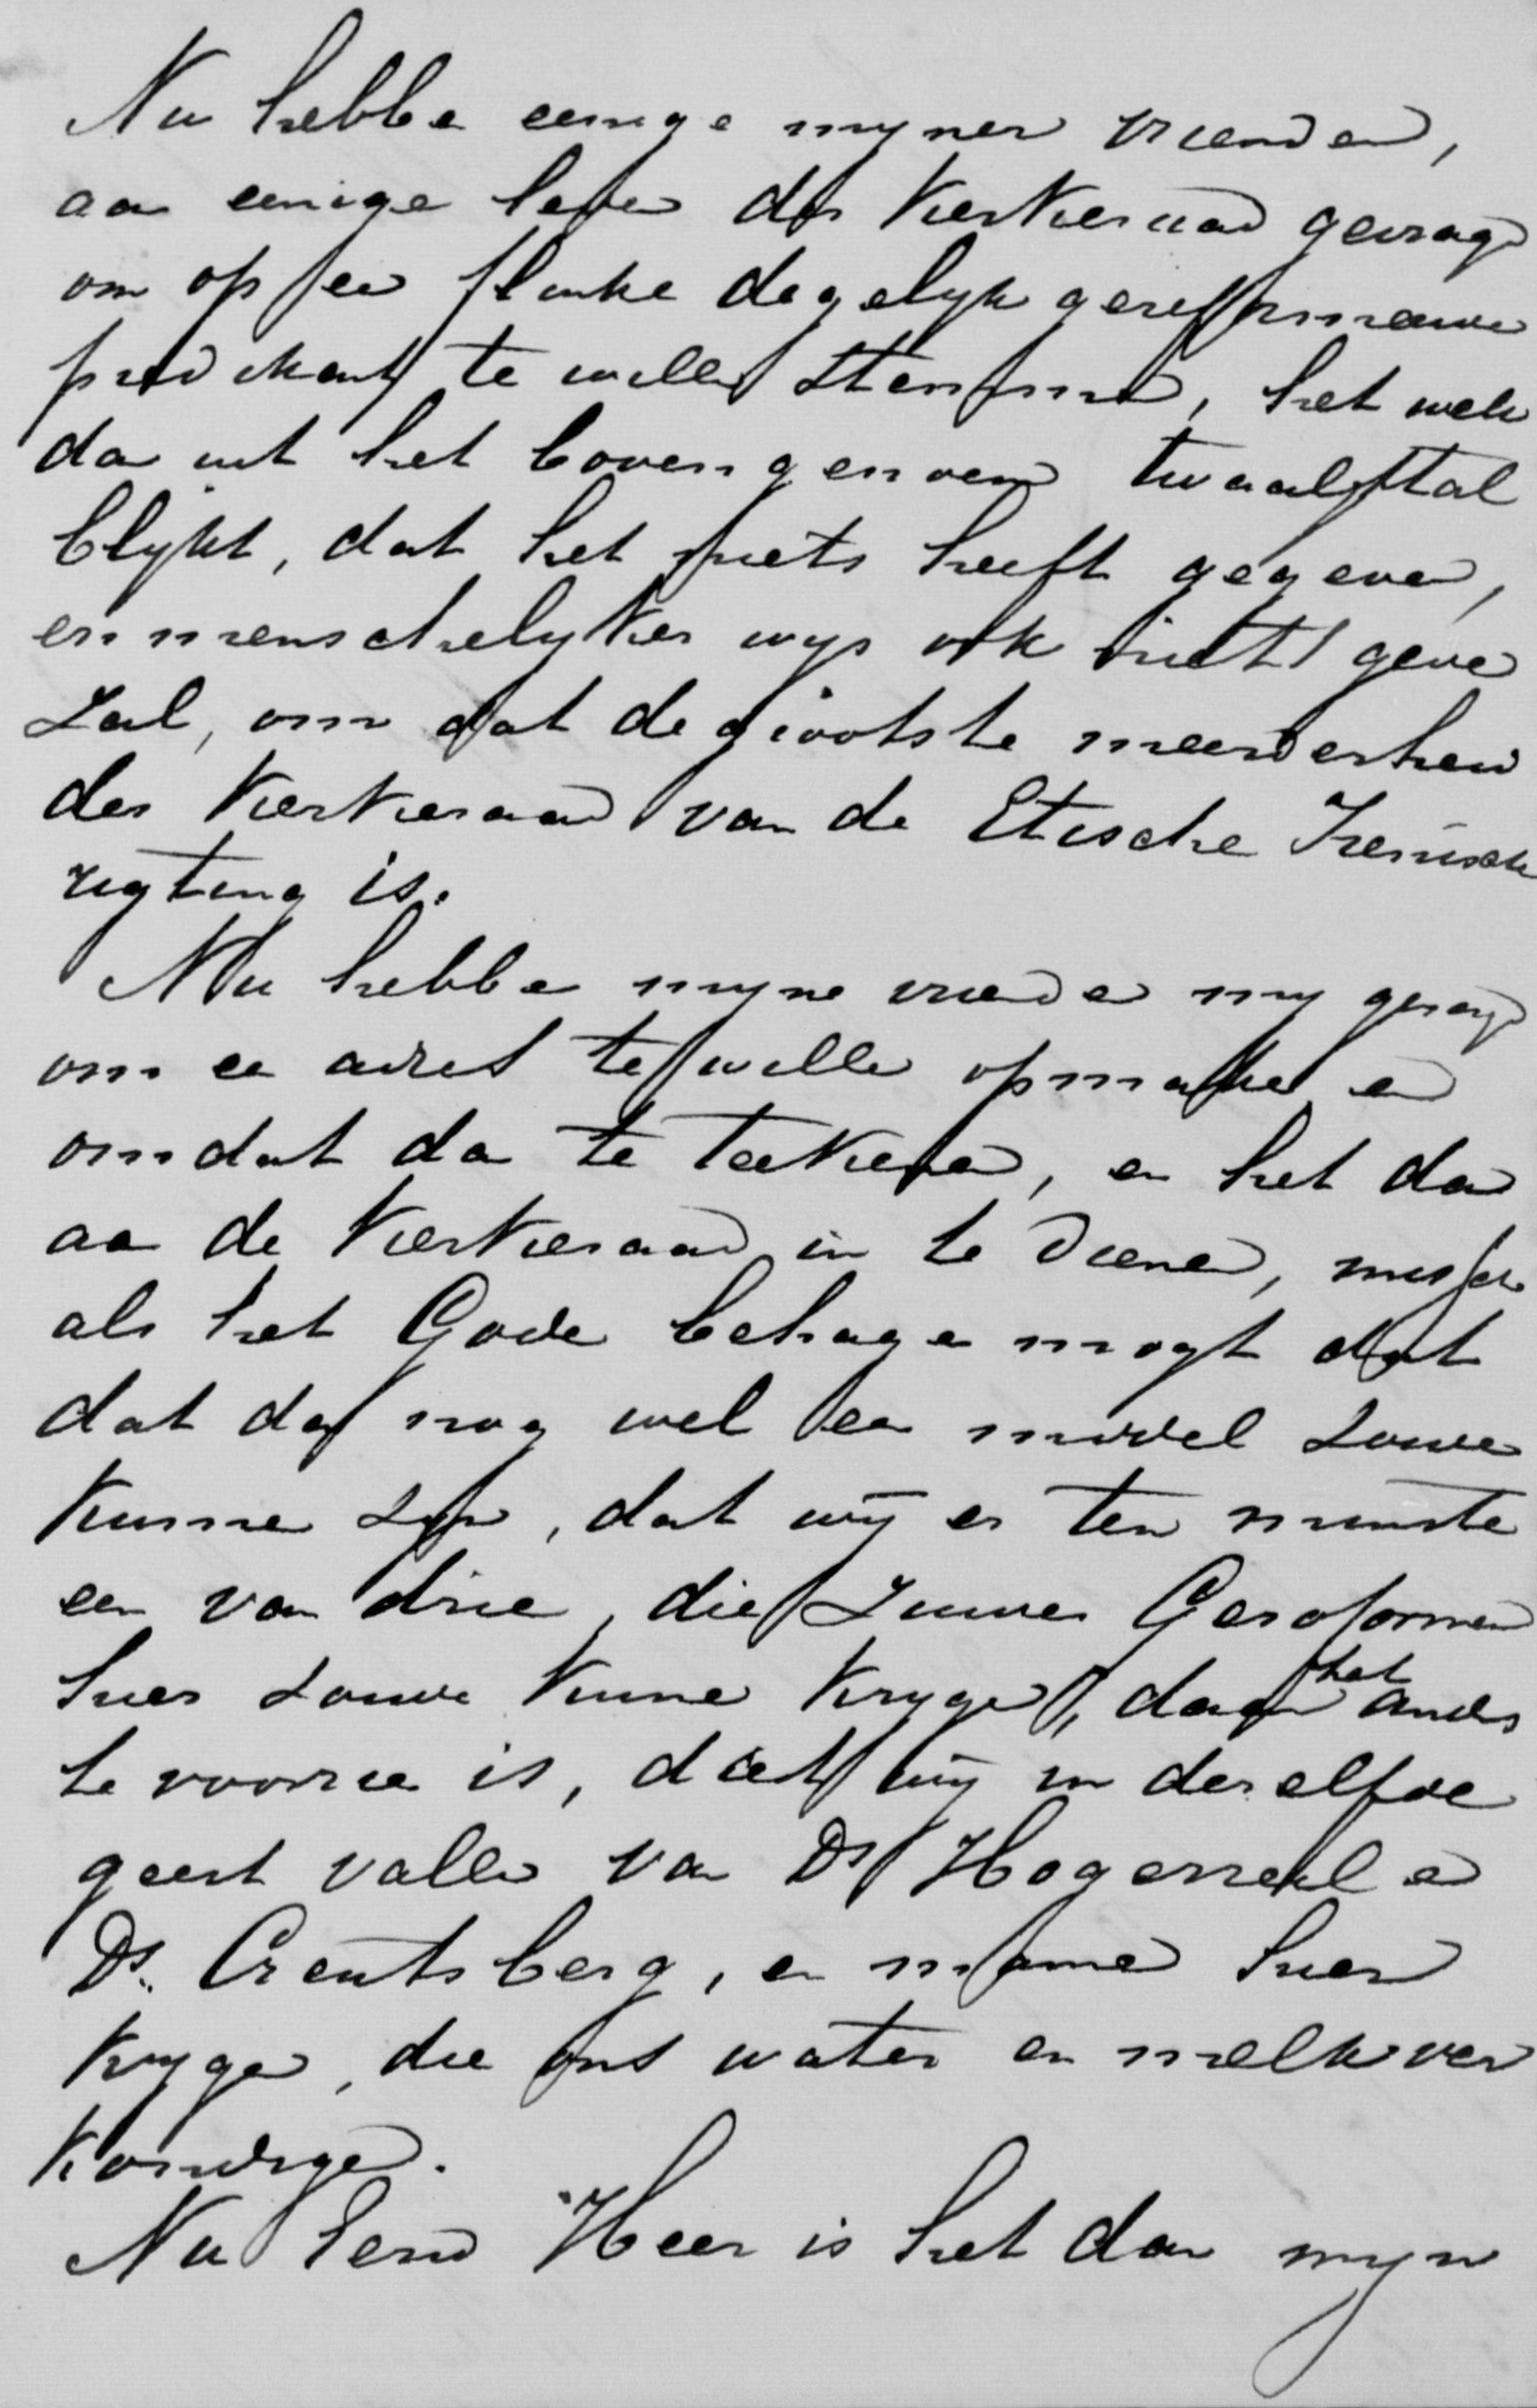 Nu hebbe eenige mijner vriende,
aan eenige lede des Kerkeraad gevraagd
om op een flinke degelijk gereformeerde
predikant te wille stemme, het welk
dan uit het bovengenoemd twaalftal
blijkt, dat het niets heeft gegeve,
en menschelijker wijs ook niet geve
zal, om dat de grootste meerderheid
des Kerkeraad van de Etische Irenische
rigting is.
Nu hebbe mijne vriende mij gevraagd
om een adres te wille opmake en
om dat dan te teekene, en het dan
aan de Kerkeraad in te diene, misschien
als het Gode behage mogt dat
dat dan nog wel een middel zoude
kunne zijn, dat wij er ten minste
een van drie, die zuiver Gereformeerd
hier zoude kunne krijge, daar het anders
te voorzien is, dat wij in deselfde
geest valle van Ds Hogerzeil en
Ds. Creutsberg, en manne hier
krijge, die ons water en melk ver
kondige.
Nu Eerw Heer is het dan mijn